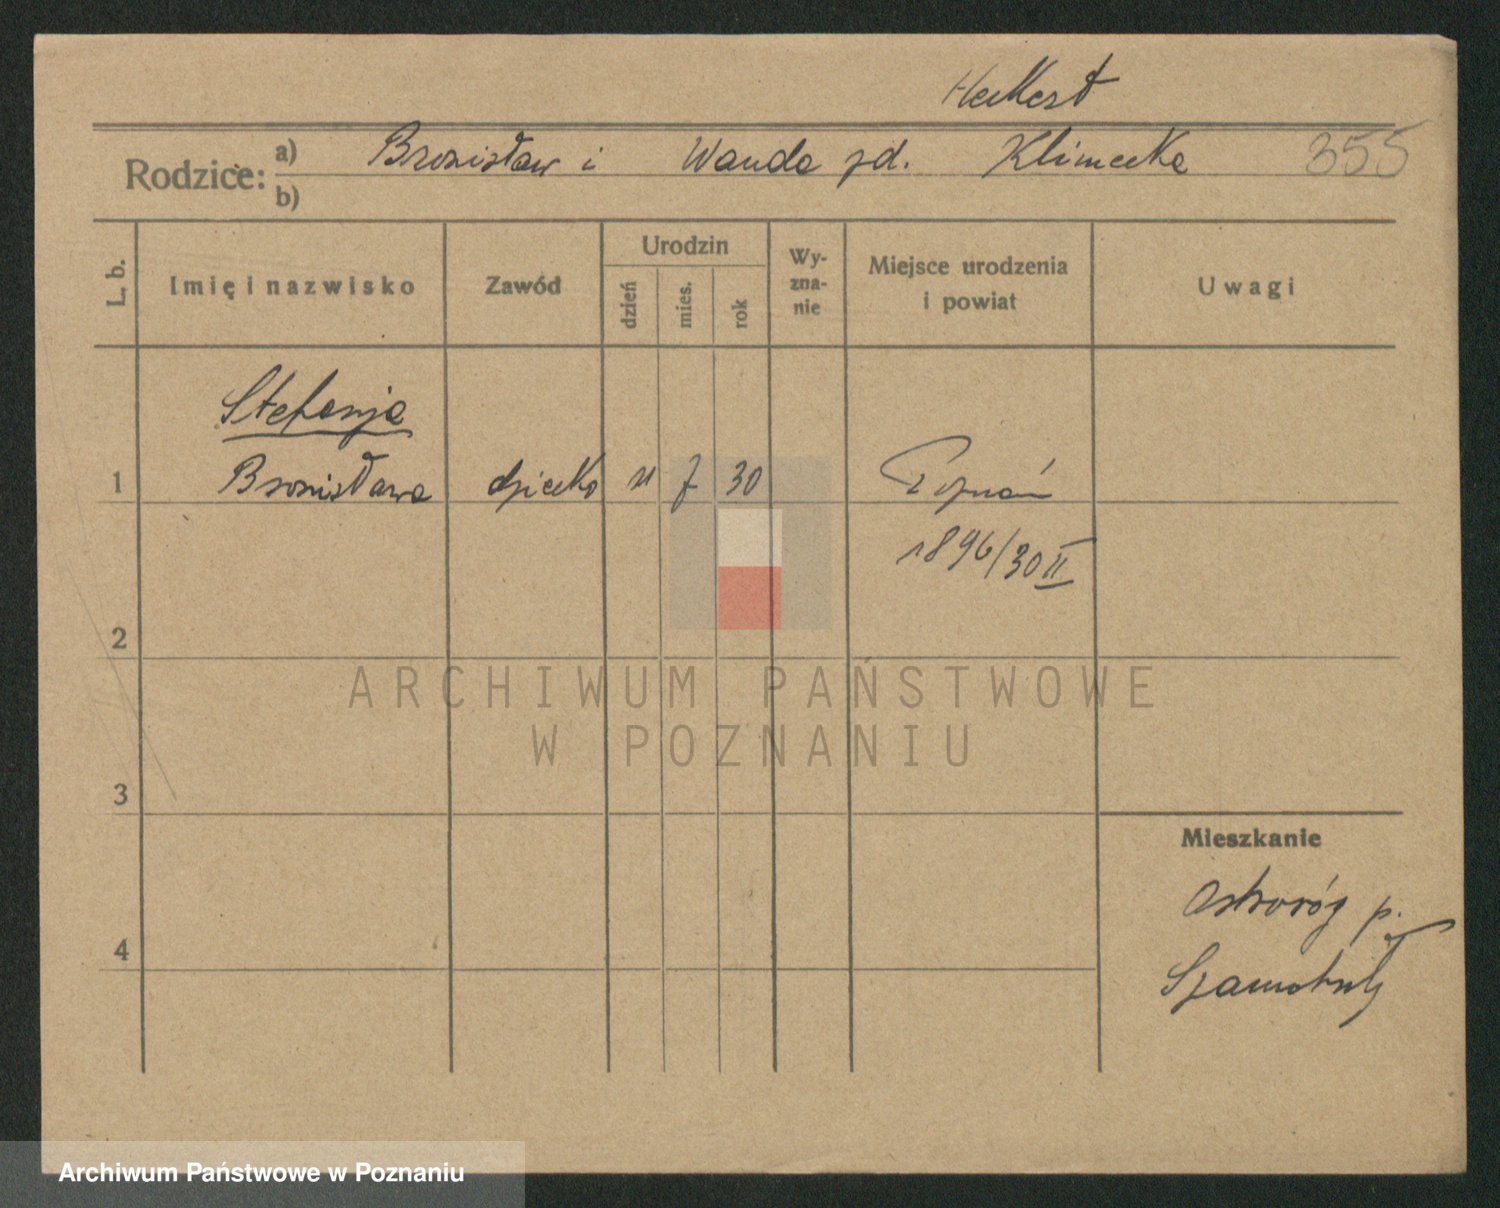 Rodzice: a) Bronisław i Wanda zd. Klimecka 355
b)
L. b.
Imię i nazwisko
Zawód
Urodzin
dzień
mies.
rok
Wy-
zna-
nie
Miejsce urodzenia
i powiat
Uwagi
Stefanja
1 Bronisława dziecko 11 7 30 Poznań
1896/30 II
2
3
4
Mieszkanie
Ostroróg p.
Szamotuły
ARCHIWUM PAŃSTWOWE
W POZNANIU
Archiwum Państwowe w Poznaniu